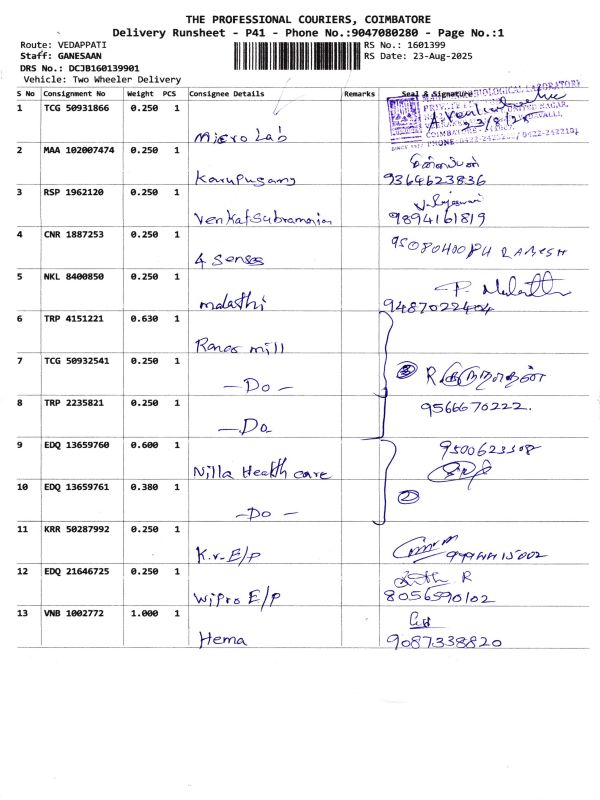 THE PROFESSIONAL COURIERS, COIMBATORE
Delivery Runsheet - P41 - Phone No.:9047080280 - Page No.:1
Route: VEDAPPATI RS No.: 1601399
Staff: GANESAAN RS Date: 23-Aug-2025
DRS No.: DCJB160139901
Vehicle: Two Wheeler Delivery
S No Consignment No Weight PCS Consignee Details Remarks Seal & Signature
1 TCG 50931866 0.250 1
23/8/25
Micro Lab
2 MAA 102007474 0.250 1
Karupusamy 9364623836
3 RSP 1962120 0.250 1
Venkatsubramanian 9894161819
4 CNR 1887253 0.250 1
4 senses RAMESH
5 NKL 8400850 0.250 1
P. Malathi
malathi 9487022404
6 TRP 4151221 0.630 1
mill
7 TCG 50932541 0.250 1
- Do - 3 R
8 TRP 2235821 0.250 1
9566670222.
- Do
9 EDQ 13659760 0.600 1
9500623308
Nilla Health care
10 EDQ 13659761 0.380 1
2
- Do -
11 KRR 50287992 0.250 1
K.v. E/P
12 EDQ 21646725 0.250 1
Wipro E/P 8056590102
13 VNB 1002772 1.000 1
Hema 9087338820